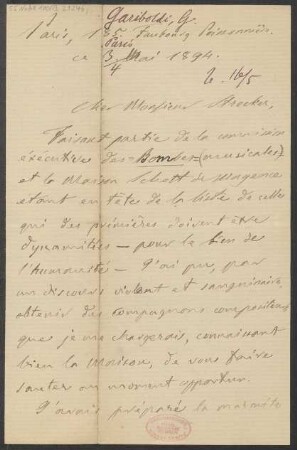 Gariboldi, G.
Paris, 1 Faubourg Poissonnière
Paris
ce 3/4 Mai 1894.
b. 16/5
Cher Monsieur Strecker,
Faisant partie de la commission
éxécutive des Bombes (musicales)
et la Maison Schott de Mayence
étant en tête de la liste de celles
qui des premières doivent être
dynamitées — pour le bien de
l'humanité — J'ai pu, par
un discours violent et sanguinaire,
obtenir des compagnons compositeurs
que je me chargerais, connaissant
bien la Maison, de vous faire
sauter au moment opportun.
J'avais préparé la marmite